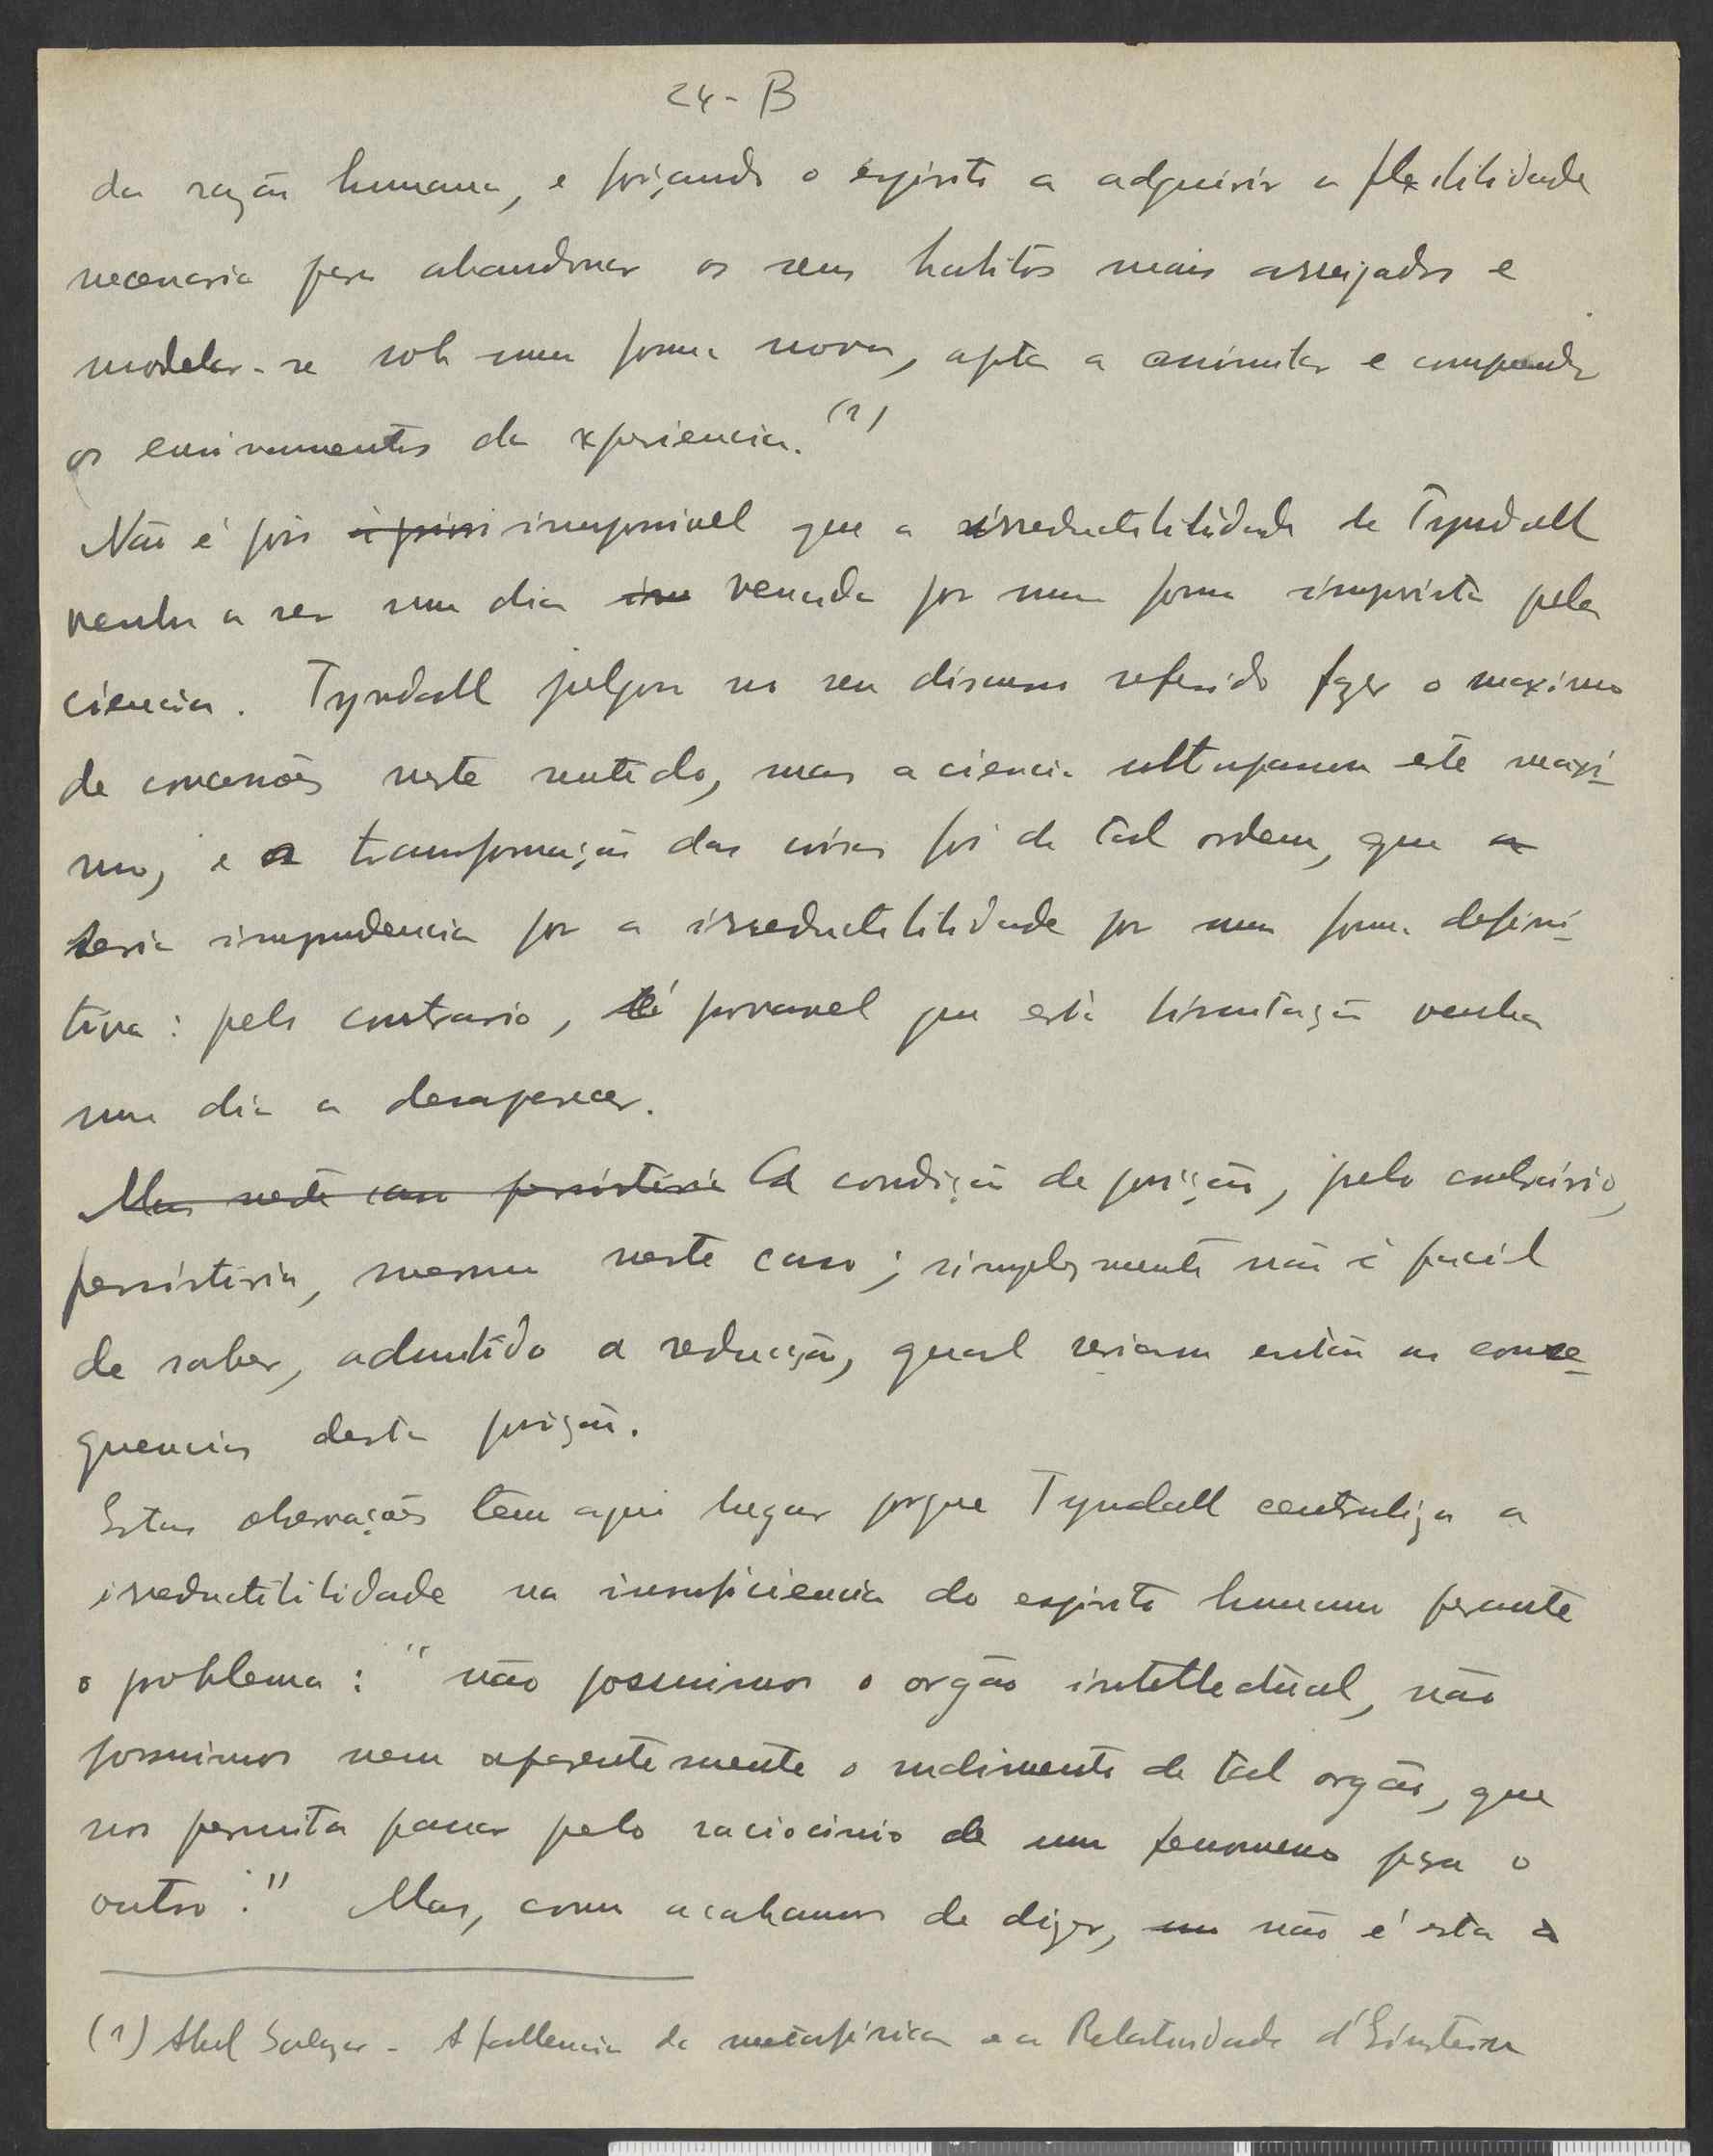 24-B
da razão humana, e forçando o espirito a adquirir a flexibilidade
necessaria para abandonar os seus habitos mais arreigados e
modelar-se sob uma forma nova, apta a assimilar e compreender
os ensinamentos da experiencia. (1)
Não é pois à priori impossivel que a irreductibilidade de Tyndall
venha a ser um dia vencida por uma forma imprevista pela
ciencia. Tyndall julgou no seu discurso referido fazer o maximo
de concessões neste sentido, mas a ciencia ultrapassou este maxi-
mo, e a transformação das coisas foi de tal ordem, que a
seria imprudencia por a irreductibilidade por uma forma defini-
tiva: pelo contrario, é provavel que esta limitação venha
um dia a desaparecer.
Mas neste caso persistiria A condição de posição, pelo contrário,
persistiria, mesmo neste caso; simplesmente não é facil
de saber, admitido a redução, qual seriam então as conse-
quencias desta posição.
Estas observações têm aqui lugar porque Tyndall centraliza a
irreductibilidade na insuficiencia do espirito humano perante
o problema: "não possuimos o orgão intellectual, não
possuimos nem aparentemente o rudimento de tal orgão, que
nos permita passar pelo raciocinio de um fenomeno para o
outro." Mas, como acabamos de dizer, não é esta a
(1) Abel Salazar - A fallencia da metafisica e a Relatividade d'Einstein